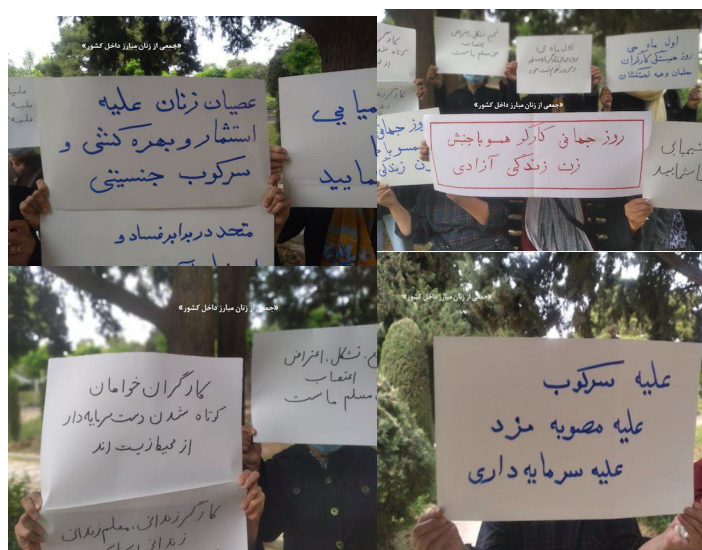 «جمعی از زنان مبارز داخل کشور»
عصیان زنان علیه
استثمار و بهره کشی و
سرکوب جنسیتی
متحد در برابر فساد و
میایی
مایید
«جمعی از زنان مبارز داخل کشور»
اعتصاب
حق مسلم ماست
اول ماه می
اول ماه می
روز همبستگی کارگران
معلمان و همه زحمتکشان
روز جهانی کارگر همسو با جنبش
زن زندگی آزادی
روز جهانی
همسو با ج
زن زندگی
شیمیایی
«جمعی از زنان مبارز داخل کشور»
کارگران خواهان
کوتاه شدن دست سرمایه دار
از محیط زیست اند
کارگر زندانی، معلم زندانی
تشکل، اعتراض
اعتصاب
مسلم ماست
«جمعی از زنان مبارز داخل کشور»
علیه سرکوب
علیه مصوبه مزد
علیه سرمایه داری